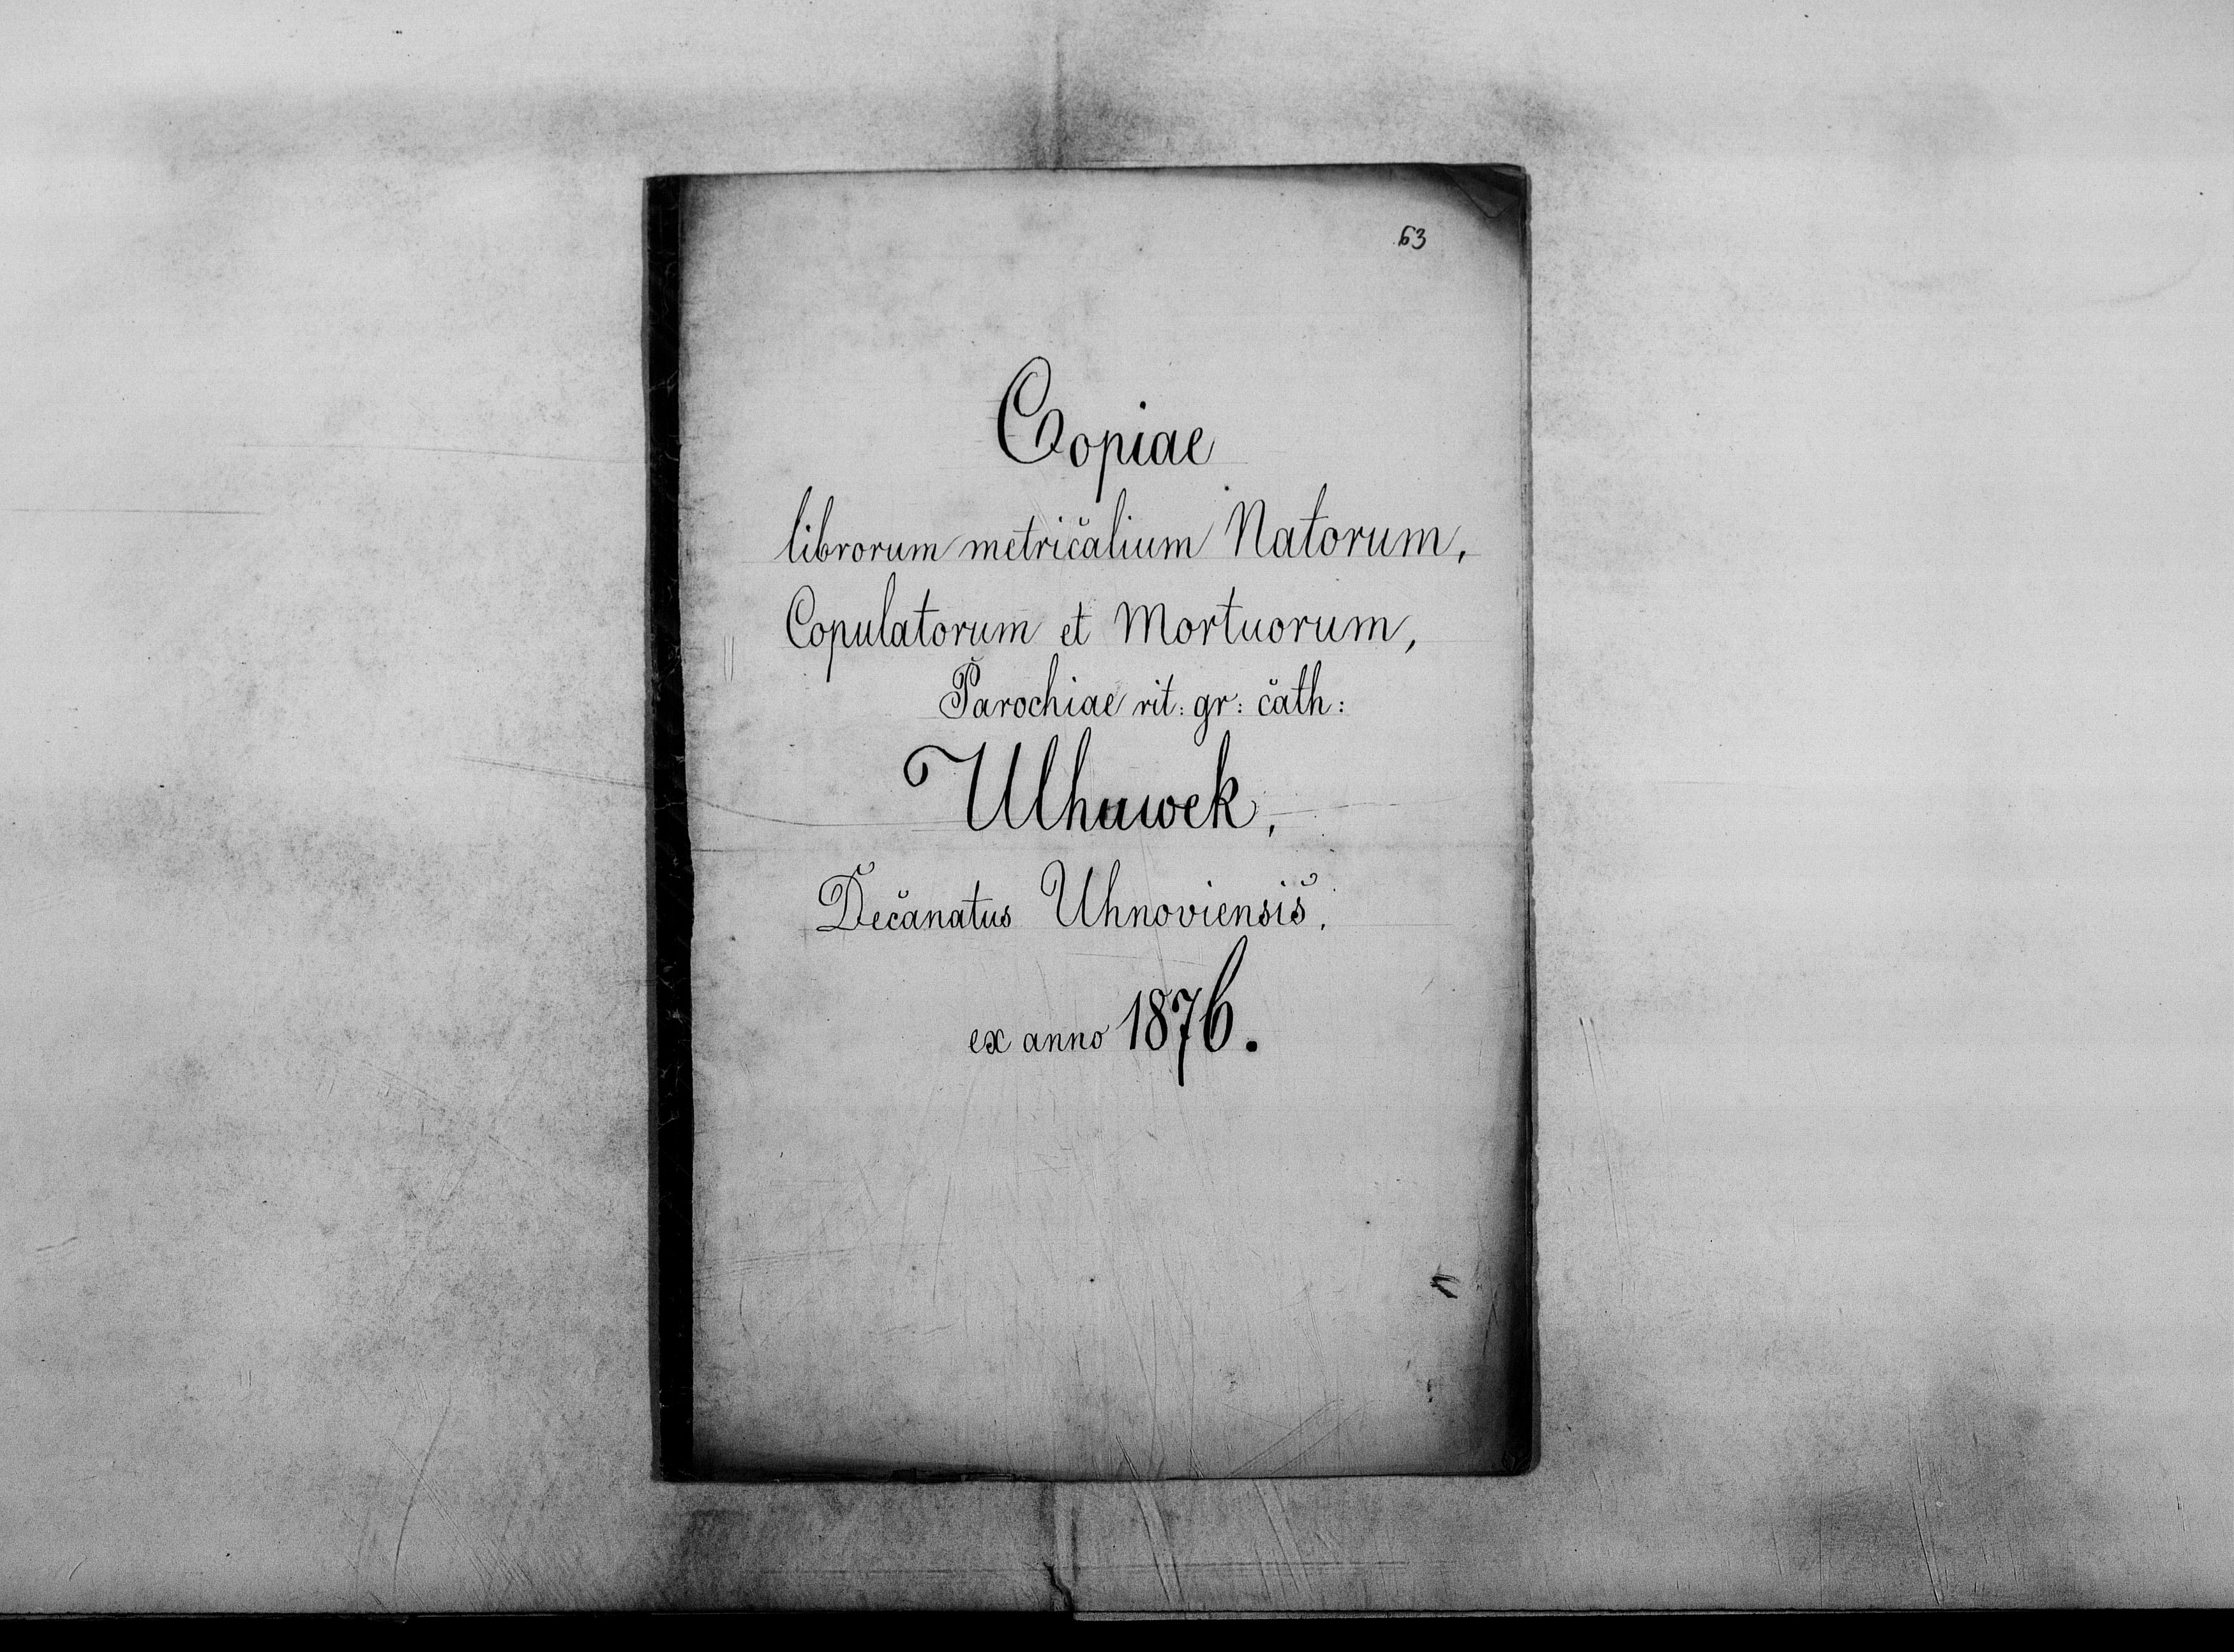 63
Copiae
librorum metričalium Natorum,
Copulatorum et Mortuorum,
Parochiae rit: gr: čath:
Ulhuwek,
Dečanatus Uhnoviensiš.
ex anno 1876.